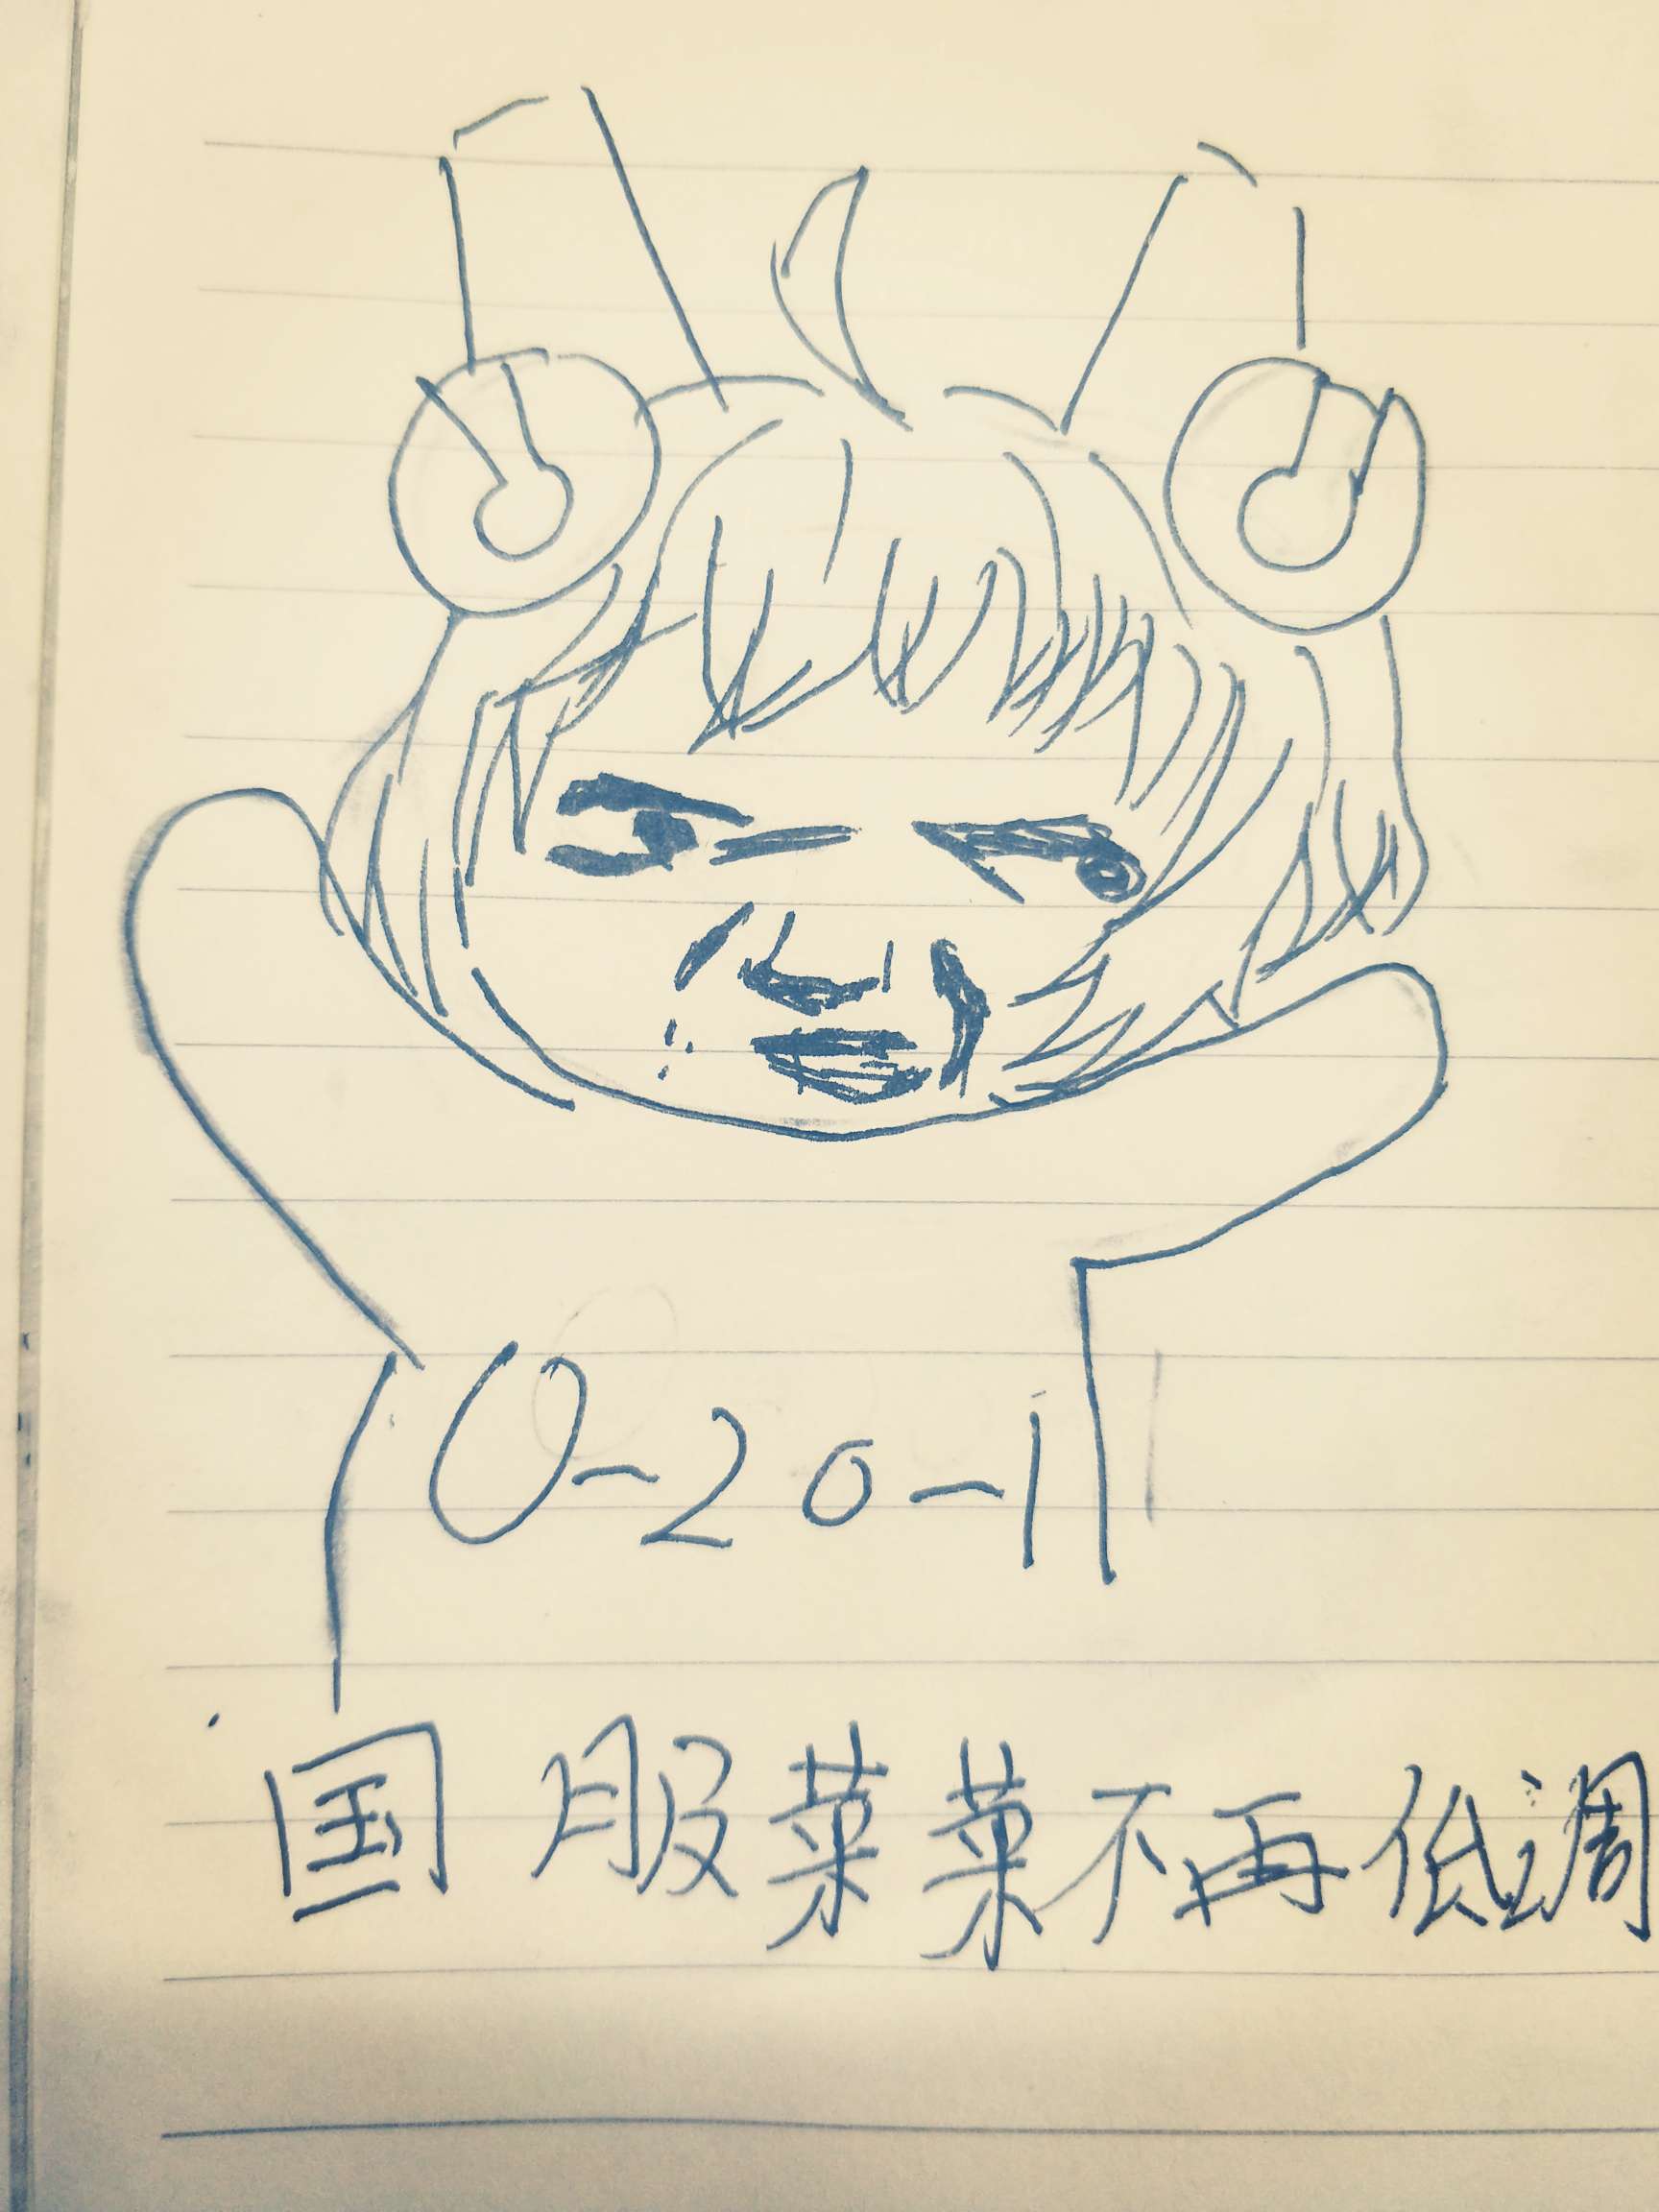 0-20-1
国服菜菜不再低调